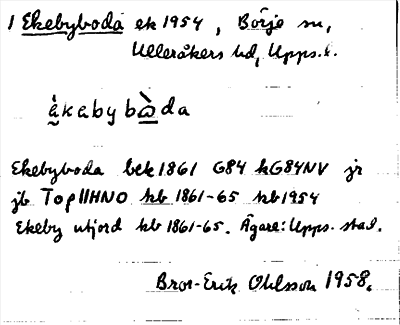 1 Ekebyboda ek 1954, Börje sn,
Ulleråkers hd, Upps. l.
åkabybòda
Ekebyboda bek 1861 G84 kG84NV jr
jb Top IIHNO kb 1861-65 kb 1954
Ekeby utjord kb 1861-65. Ägare: Upps. stad.
Bror-Erik Ohlsson 1958.